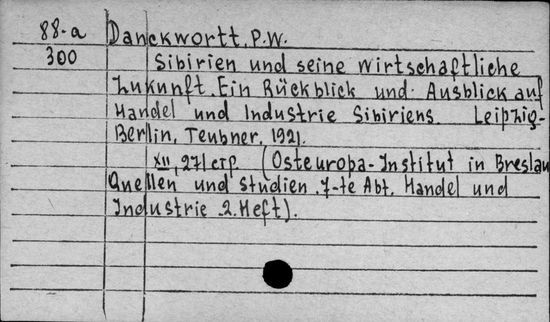 88-a Danckwortt, P.W.
300 Sibirien und seine wirtschaftliche
Zukunft. Ein Rückblick und Ausblick auf
Handel und Industrie Sibiriens. Leipzig-
Berlin, Teubner, 1921.
XII, 271 стр. (Osteuropa-Institut in Breslau
Quellen und Studien. 7-te Abt. Handel und
Industrie. 2. Heft).